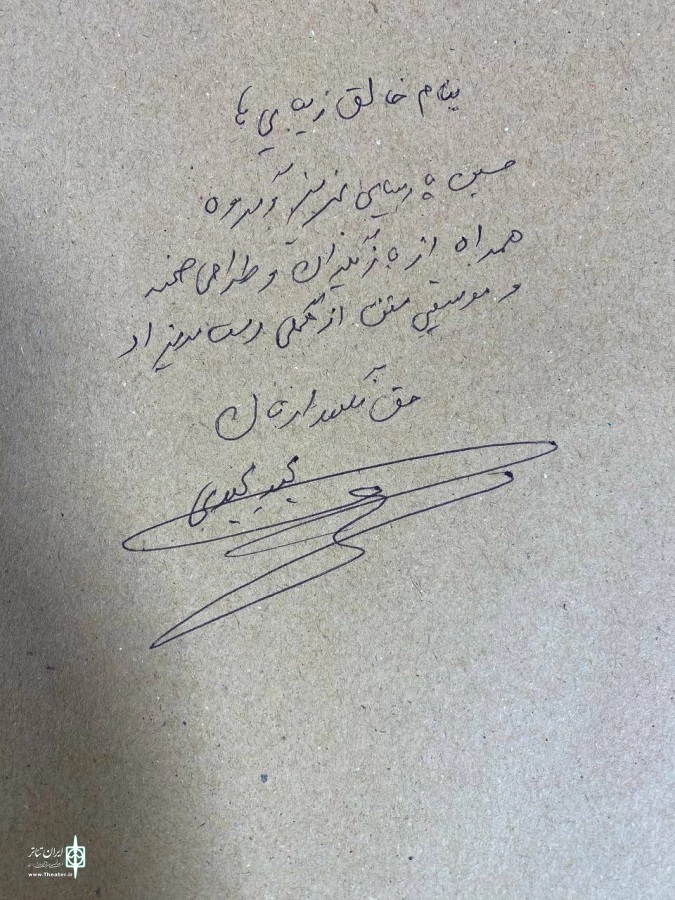 بنام خالق زیبایی ها
حسین پارسایی عزیز و گروه
همراه از بازیگران و طراحی صحنه
و موسیقی متن از همگی دست مریزاد
حق نگهدارتان
مجید مجیدی
ایران تئاتر
www.Theater.ir